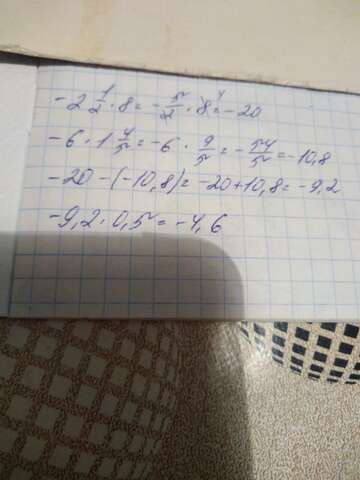 -2 1/2 · 8 = -5/2 · 8 4 = -20
-6 · 1 4/5 = -6 · 9/5 = -54/5 = -10,8
-20 - (-10,8) = -20 + 10,8 = -9,2
-9,2 · 0,5 = -4,6